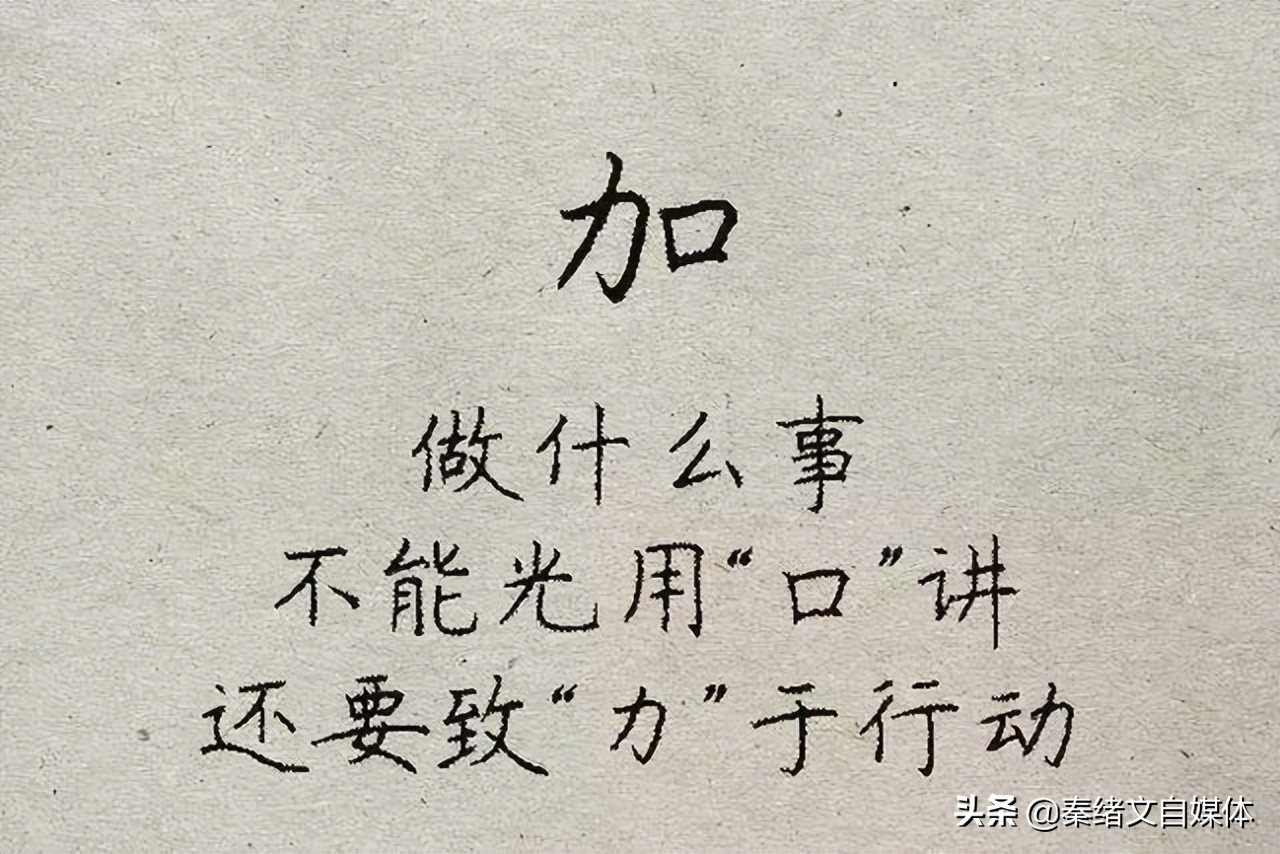 加
做什么事
不能光用“口”讲
还要致“力”于行动
头条 @秦绪文自媒体